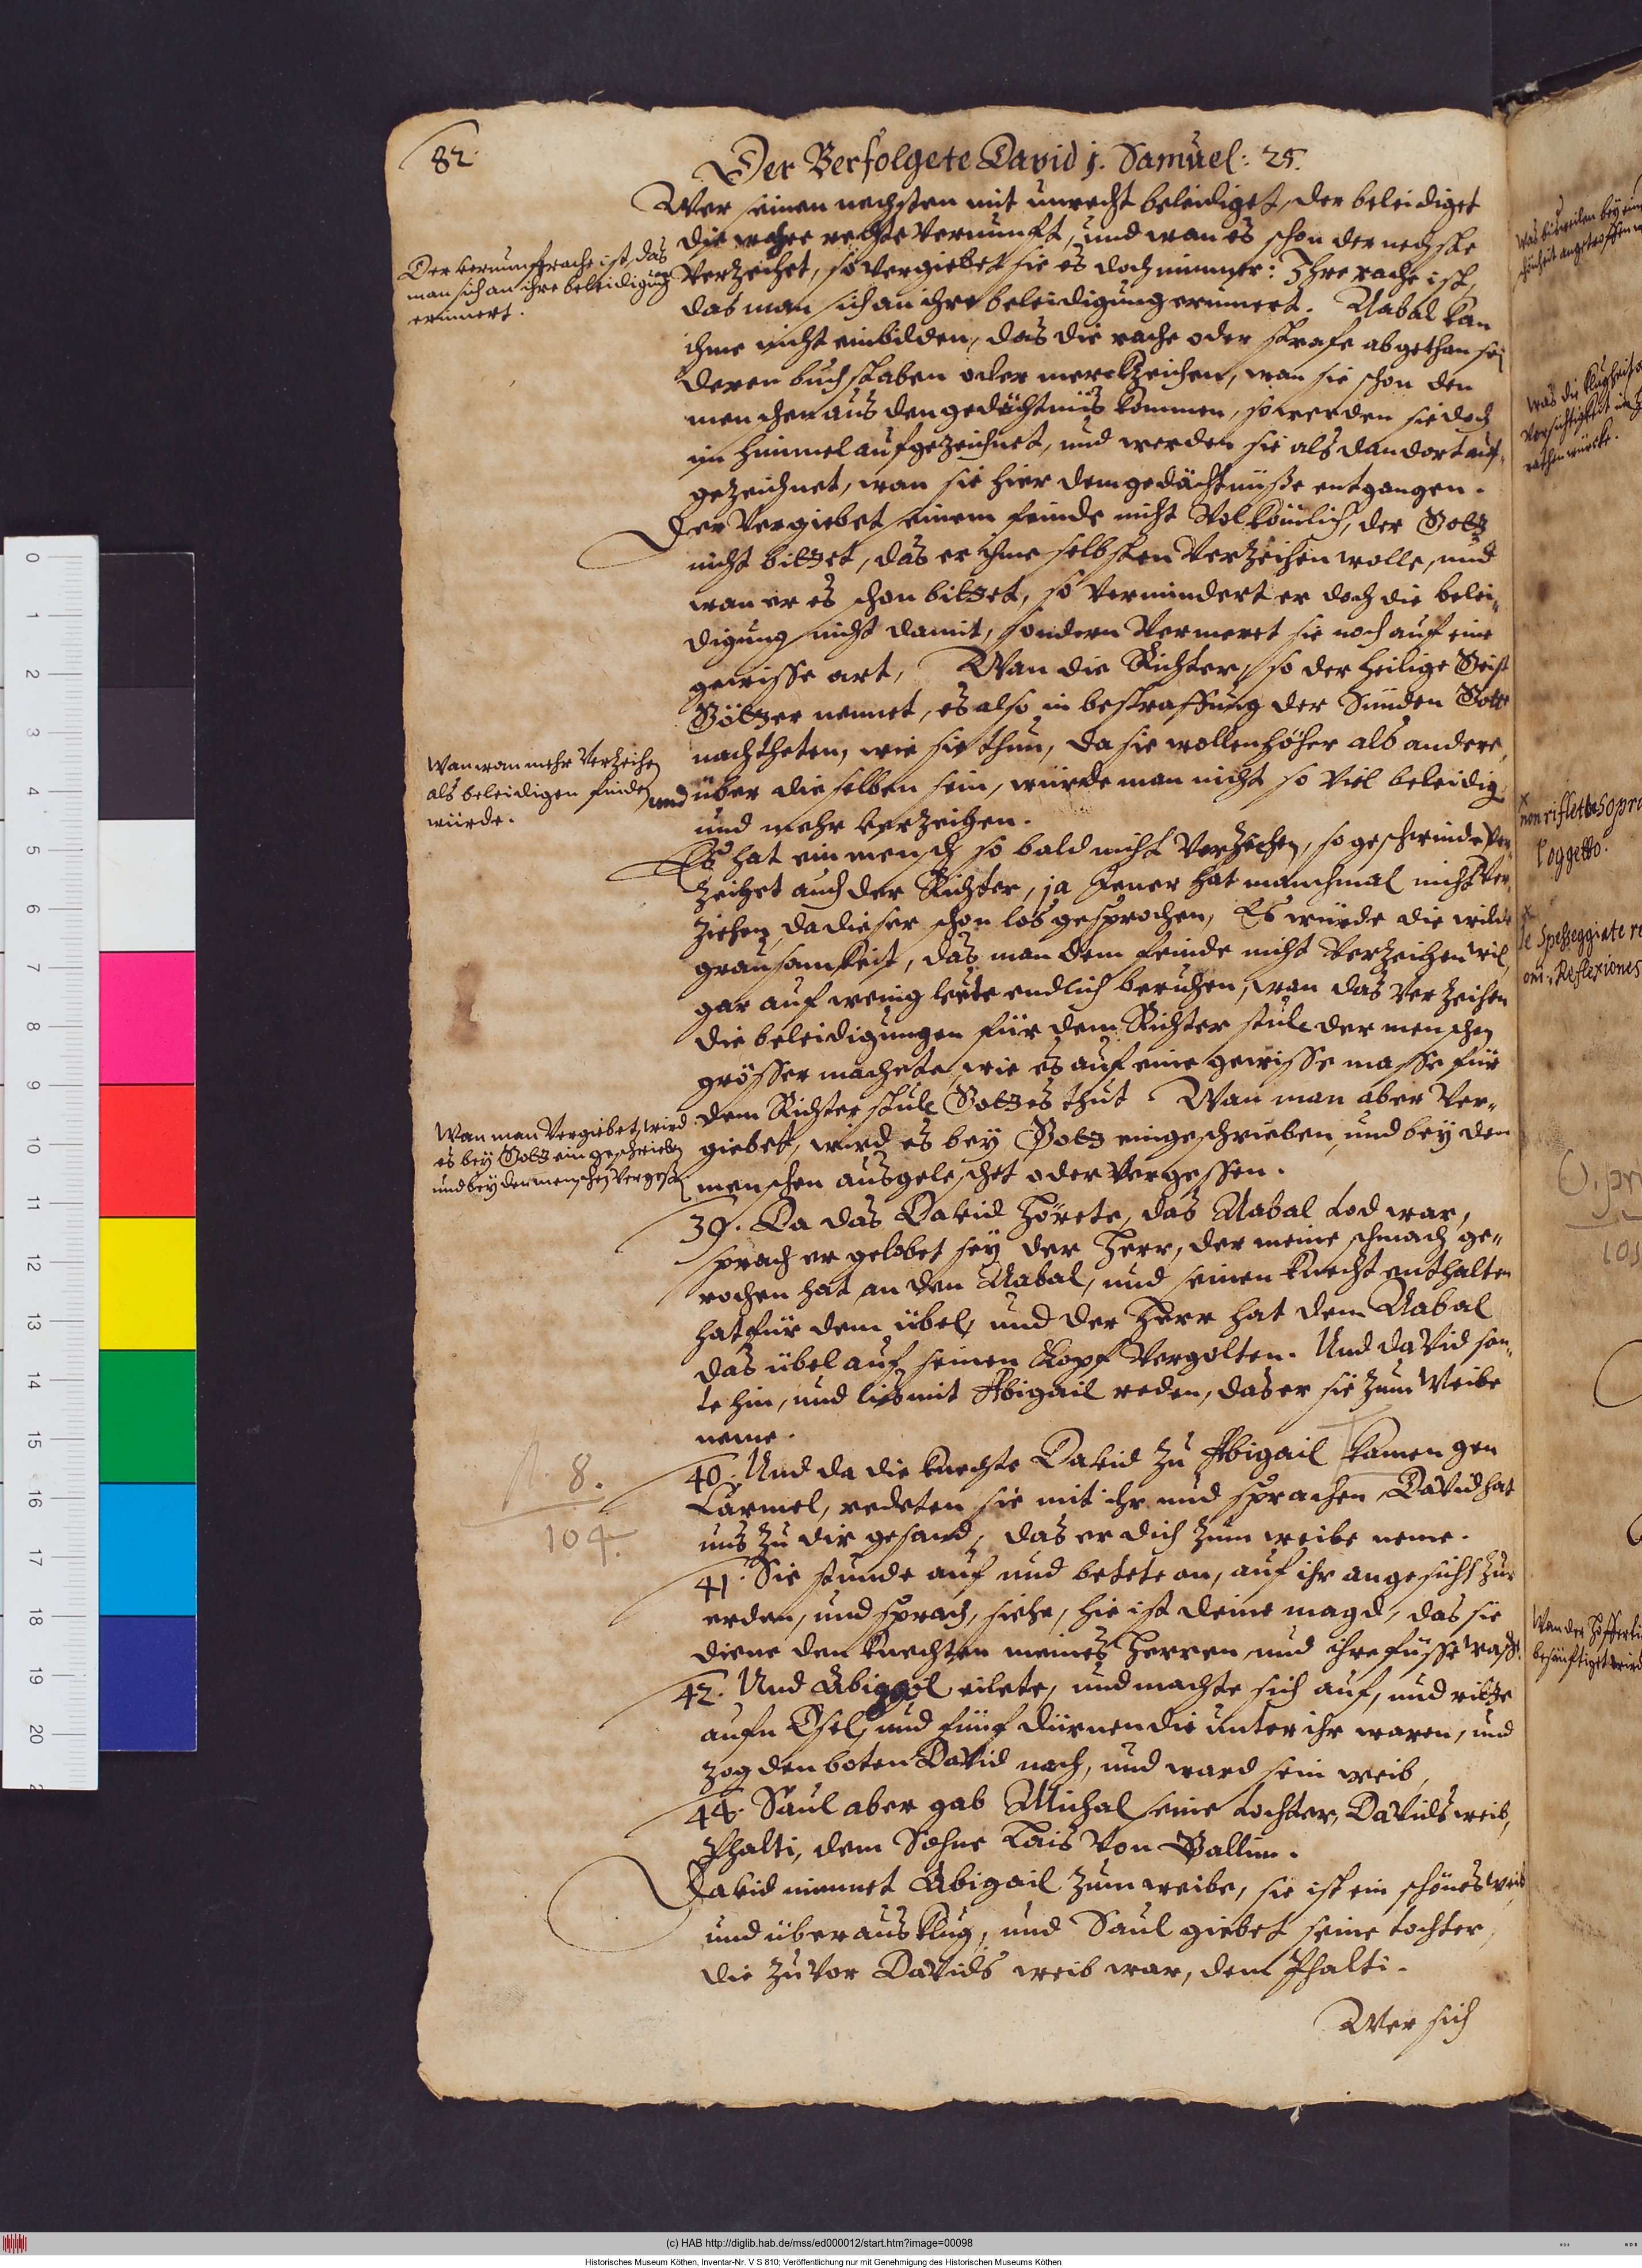 82.
Der Verfolgete David j. Samuel: 25.
Wer seinen nechsten mit unrecht beleidiget, der beleidiget
die wahre rechte Vernunft, und wan es schon der nechste
Verzeihet, so vergiebet sie es doch nimmer: Ihre rache ist,
das man sich an ihre beleidigung erinnert. Nabal kan
ihme nicht einbilden, das die rache oder strafe abgethan sej
deren buchstaben oder merckzeichen, wan sie schon den
menschen aus dem gedächtnüs kommen, so werden sie doch
im himmel aufgezeichnet, und werden sie als dan dort auf-
gezeichnet, wan sie hier dem gedächtnüsse entgangen.
Der Vergiebet seinem feinde nicht Volkömlich, der Gott
nicht bittet, das er ihme selbsten Verzeihen wolle, und
wan er es schon bittet, so Vermindert er doch die belei-
digung nicht damit, sondern Vermeret sie noch auf eine
gewisse art, Wan die Richter, so der heilige Geist
Götter nennet, es also in bestraffung der Sünden Gotte
nachtheten, wie sie thun, da sie wollen höher als andere,
und über dieselben sein, würde man nicht so Viel beleidig
und mehr Verzeihen.
Es hat ein mensch so bald nicht Verziehen, so geschwinde Ver-
zeihet auch der Richter, ja Jener hat manchmal nicht Ver-
ziehen, da dieser schon losgesprochen, Es würde die wilde
grausamkeit, das man dem feinde nicht Verzeihen wil,
gar auf wenig leute endlich beruhen, wan das Verzeihen
die beleidigungen für dem Richter stule der menschen
grösser machete, wie es auf eine gewisse masse für
dem Richter stule Gottes thut. Wan man aber Ver-
giebet, wird es bey Gott eingeschrieben, und bey den
menschen ausgeleschet oder Vergessen.
39. Da das David hörete, das Nabal tod war,
sprach er gelobet sey der Herr, der meine schmach ge-
rochen hat an dem Nabal, und seinen knecht enthalten
hat für dem übel, und der Herr hat dem Nabal
das übel auf seinen Kopf Vergolten. Und David san-
te hin, und lies mit Abigail reden, das er sie zum Weibe
neme.
40. Und da die knechte David zu Abigail kamen gen
Carmel, redeten sie mit ihr und sprachen, David hat
uns zu dir gesand, das er dich zum weibe neme.
41. Sie stunde auf und betete an, auf ihr angesicht zur
erden, und sprach, siehe, hie ist deine magd, das sie
diene den knechten meines Herren, und ihre füsse wasche
42. Und Abigail eilete, und machte sich auf, und ritte
aufm Esel, und fünf dirnen die unter ihr waren, und
zog den boten David nach, und ward sein weib,
44. Saul aber gab Michal seine tochter, Davids weib,
Phalti, dem Sohne Lais Von Gallim.
David nimmet Abigail zum weibe, sie ist ein schönes weib
und überaus klug, und Saul giebet seine tochter,
die zuvor Davids weib war, dem Phalti.
Wer sich
Der Vernunft rache ist, das
man sich an ihre beleidigung
erinnert.
Wan man mehr Verzeihen
als beleidigen finden
würde.
Wan man Vergiebet, wird
es bey Gott eingeschrieben
und bey den menschen Vergessen
8.
104.
non riflette sopra
l'oggetto.
le spesseggiate
Reflexiones
0 1 2 3 4 5 6 7 8 9 10 11 12 13 14 15 16 17 18 19 20
(c) HAB http://diglib.hab.de/mss/ed000012/start.htm?image=00098
Historisches Museum Köthen, Inventar-Nr. V S 810; Veröffentlichung nur mit Genehmigung des Historischen Museums Köthen